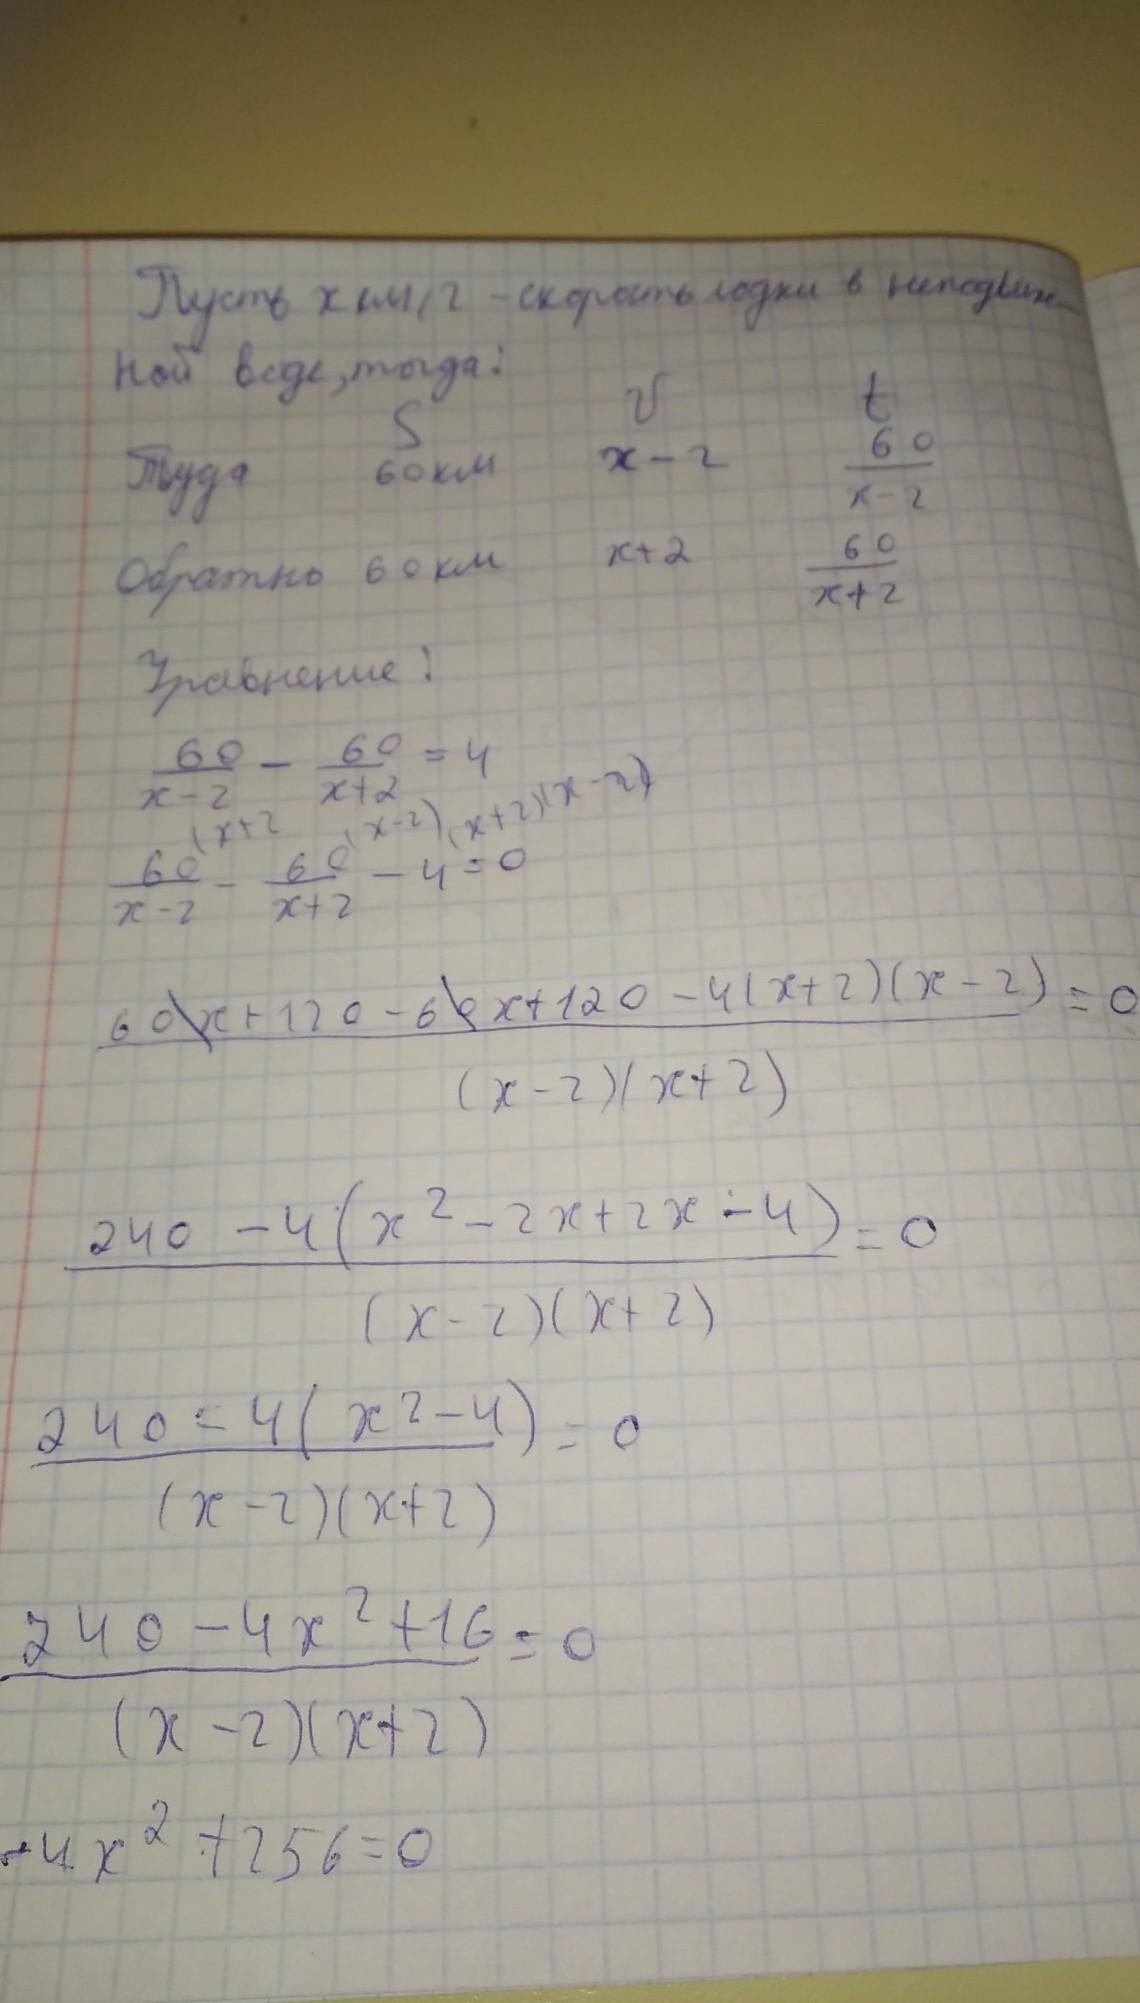 Пусть x км/г - скорость лодки в неподвиж-
ной воде, тогда:
S v t
Туда 60 км x-2 60/(x-2)
Обратно 60 км x+2 60/(x+2)
Уравнение:
60/(x-2) - 60/(x+2) = 4
(x+2 (x-2) (x+2)(x-2)
60/(x-2) - 60/(x+2) - 4 = 0
60x+120-60x+120-4(x+2)(x-2) = 0
(x-2)(x+2)
240 -4(x²-2x+2x-4) = 0
(x-2)(x+2)
240-4(x²-4) = 0
(x-2)(x+2)
240-4x²+16 = 0
(x-2)(x+2)
-4x²+256=0